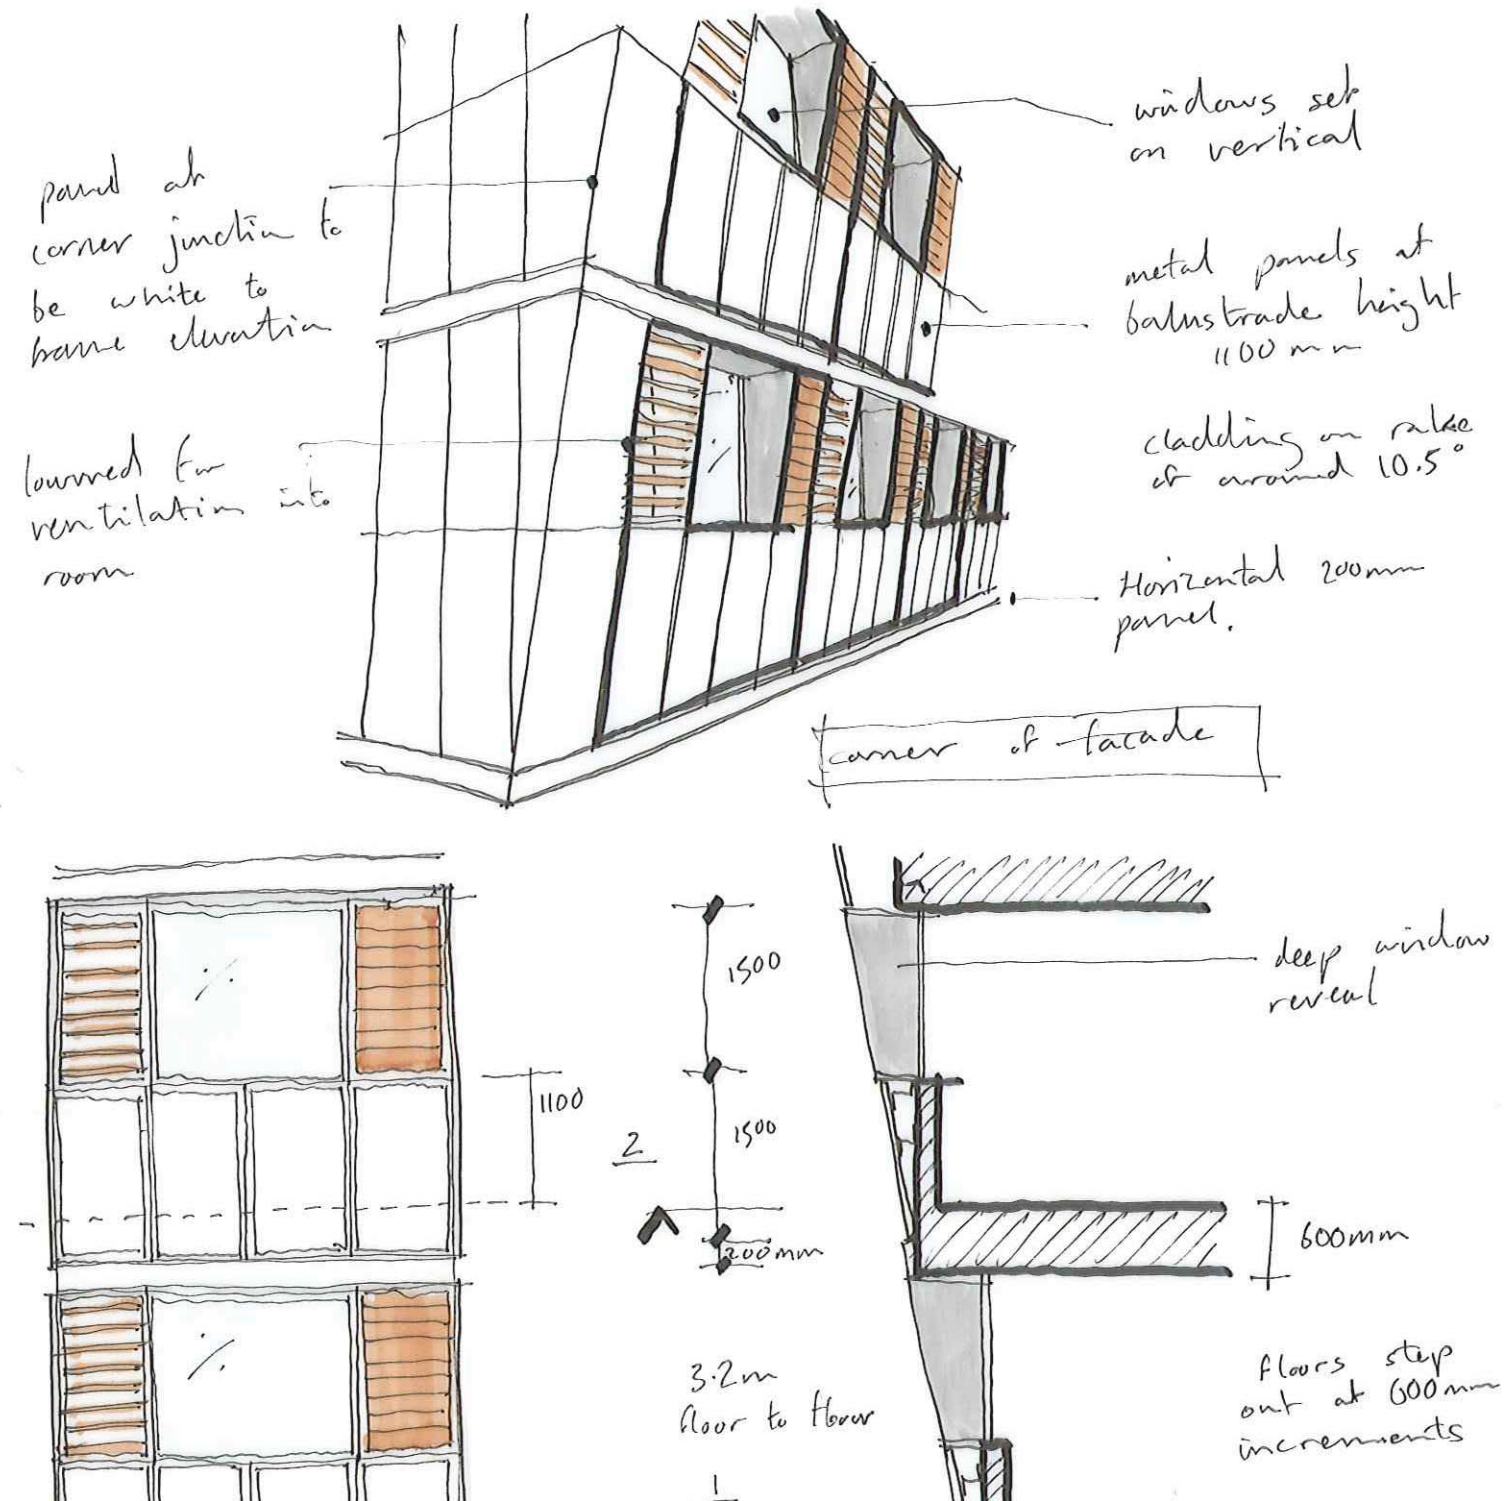 panel at
corner junction to
be white to
frame elevation
louvred for
ventilation into
room
windows set
on vertical
metal panels at
balustrade height
1100 mm
cladding on rake
of around 10.5°
Horizontal 200mm
panel.
corner of facade
1100
2
1500
1500
200mm
3.2m
floor to floor
1
deep window
reveal
600mm
floors step
out at 600mm
increments